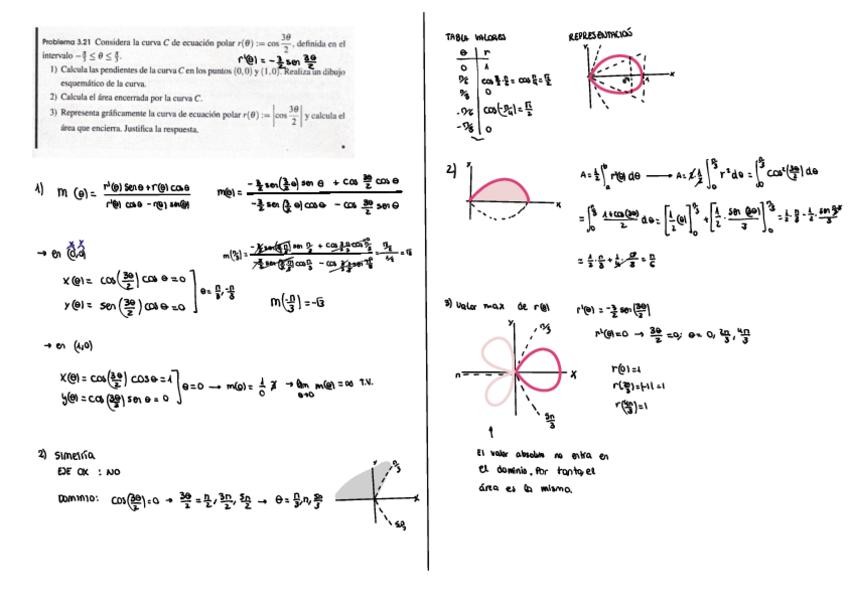 Problema 3.21 Considera la curva C de ecuación polar r(θ) := cos 3θ/2, definida en el
intervalo −π/3 ≤ θ ≤ π/3.
r'(θ) = -3/2 sen 3θ/2
1) Calcula las pendientes de la curva C en los puntos (0,0) y (1,0). Realiza un dibujo
esquemático de la curva.
2) Calcula el área encerrada por la curva C.
3) Representa gráficamente la curva de ecuación polar r(θ) := |cos 3θ/2| y calcula el
área que encierra. Justifica la respuesta.
1) m(θ) = (r'(θ) senθ + r(θ) cosθ)/(r'(θ) cosθ - r(θ) senθ)
m(θ) = (-3/2 sen(3/2 θ) sen θ + cos 3θ/2 cos θ)/(-3/2 sen(3/2 θ) cos θ - cos 3θ/2 sen θ)
→ en (0,0)
x(θ) = cos(3θ/2) cos θ = 0
y(θ) = sen(3θ/2) cos θ = 0
θ = π/3, -π/3
m(-π/3) = -√3
→ en (1,0)
x(θ) = cos(3θ/2) cosθ = 1
y(θ) = cos(3θ/2) sen θ = 0
θ = 0 → m(0) = 1/0 → lim θ→0 m(θ) = ∞ T.V.
2) Simetría
EJE OX : NO
DOMINIO: cos(3θ/2) = 0 → 3θ/2 = π/2, 3π/2, 5π/2 → θ = π/3, π, 5π/3
Y
π/3
X
5π/3
TABLA VALORES
θ r
0 1
π/6 cos 3/2·π/6 = cos π/4 = √2/2
π/3 0
-π/6 cos(-π/4) = √2/2
-π/3 0
REPRESENTACIÓN
Y
X
2)
Y
X
A = 1/2 ∫ r²(θ) dθ → A = 2·1/2 ∫₀^π/3 r² dθ = ∫₀^π/3 cos²(3θ/2) dθ
= ∫₀^π/3 (1+cos(3θ))/2 dθ = [1/2 (θ)]₀^π/3 + [1/2 · sen(3θ)/3]₀^π/3
= π/6
3) Valor max de r(θ)
r'(θ) = -3/2 sen(3θ/2)
r'(θ) = 0 → 3θ/2 = 0; θ = 0, 2π/3, 4π/3
r(0) = 1
r(2π/3) = |-1| = 1
r(4π/3) = 1
Y
π/3
π
X
5π/3
El valor absoluto no entra en
el dominio. Por tanto, el
área es la misma.